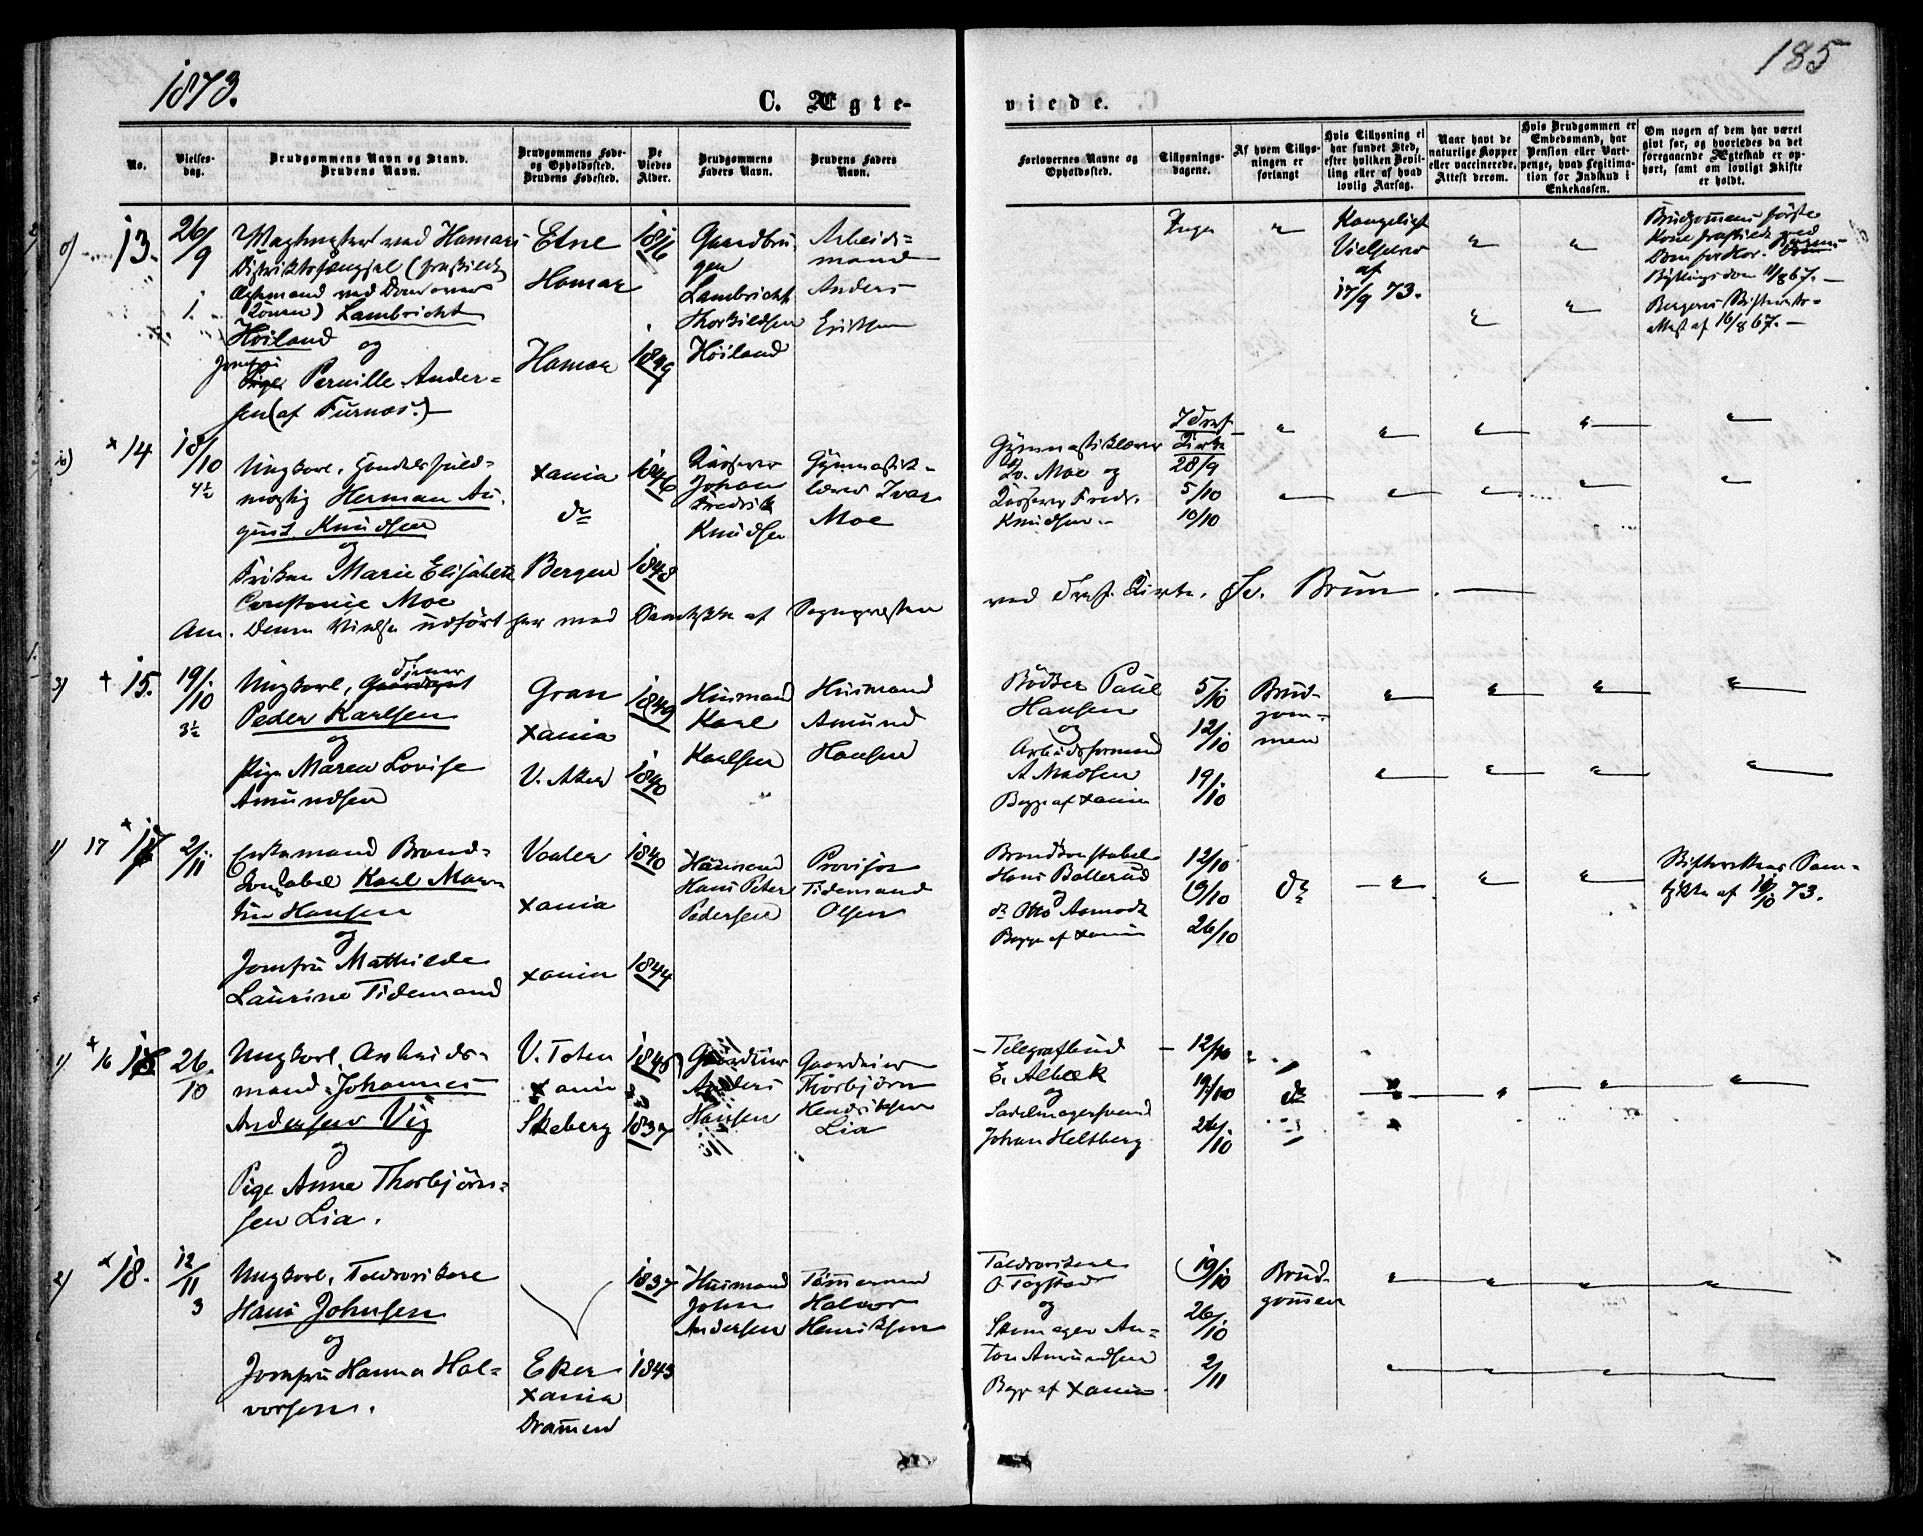 1873.
185
C. Ægte-
viede.
No.
Vielses-
dag.
Brudgommens Navn og Stand.
Brudens Navn.
Brudgommens Føde-
og Opholdssted.
Brudens Fødested.
De
Viedes
Alder.
Brudgommens
Faders Navn.
Brudens Faders
Navn.
Forlovernes Navne og
Opholdssted.
Tillysnings-
dagene.
Af hvem Tillys-
ningen er
forlangt
Hvis Tillysning ei
har fundet Sted,
efter hvilken Bevil-
ling eller af hvad
lovlig Aarsag.
Naar havt de
naturlige Kopper
eller vaccinerede.
Attest derom.
Hvis Brudgommen er
Embedsmand, har
Pension eller Vart-
penge, hvad Legitima-
tion for Indskud i
Enkekassen.
Om nogen af dem har været
givt før, og hvorledes da det
foregaaende Ægteskab er op-
hørt, samt om lovligt Skifte
er holdt.
13.
26/9
Vagtmester ved Hamars
Distriktsfængsel (fraskildt
Ægtemand ved Dom over
Konen) Lambricht
Höiland og
Jomfru
Pige Pernille Ander-
sen (af Furnæs.)
Etne
Hamar
Hamar
1849
Gaardbru-
gen
Lambricht
Thorkildsen
Höiland
Arbeids-
mand
Anders
Eriksen
Inga
Kongeligt
Vielsesbrev
af
17/9 73.
Brudgommens første
Kone fraskildt ved
16/8 67.
14
18/10
4½
Ungkarl, Handelsfuld-
mægtig Herman Au-
gust Knudsen
og
Frøken Marie Elisabeth
Constance Moe
Xania
do
Bergen
1846
1848
Kasserer
Johan
Fredrik
Knudsen
Gymnastik-
lærer Ivar
Moe
Gymnastiklærer
Iv. Moe og
Kasserer Fredr.
Knudsen
28/9
5/10
10/10
Anm. Denne Vielse udført her med Samtykke af Sognepresten
ved Kirke. Brun.
15.
19/10
3½
Ungkarl,
Peder Karlsen
og
Pige Maren Lovise
Amundsen
Gran
Xania
V. Aker
1849
1840
Husmand
Karl
Karlsen
Husmand
Amund
Hansen
Bödker Paul
Hansen
og
Arbeidsformand
A Madsen
Begge af Xania
5/10
12/10
19/10
Brud-
gom-
men
17
2/11
Enkemand Brand-
konstabel Karl Mar-
tin Hansen
og
Jomfru Mathilde
Laurine Tidemand
Vaaler
Xania
Xania
1840
1844
Husmand
Hans Peter
Pedersen
Provisor
Tidemand
Olsen
Brandkonstabel
Hans Bollerud
og
do Otto Asmodt
Begge af Xania
12/10
19/10
26/10
do
Skifterettens Sam-
tykke af 73.
16
26/10
Ungkarl, Arbeids-
mand Johannes
Andersen Vig
og
Pige Anne Thorbjörn-
sen Lia.
V. Toten
Xania
Skeberg
1845
1837
Gaardeier
Anders
Hansen
Gaardeier
Thorbjörn
Henriksen
Lia
Telegrafbud
E. Albæk
og
Sadelmagersvend
Johan Heltberg
12/10
19/10
26/10
do
18.
12/11
3
Ungkarl, Toldroerskarl
Hans Johnsen
og
Jomfru Hanna Hal-
vorsen.
Eker
Xania
Dramen
1837
1843
Husmand
John
Andersen
Tömmermand
Halvor
Henriksen
og
Skomager An-
ton Amundsen
Begge af Xania
19/10
26/10
2/11
Brud-
gommen